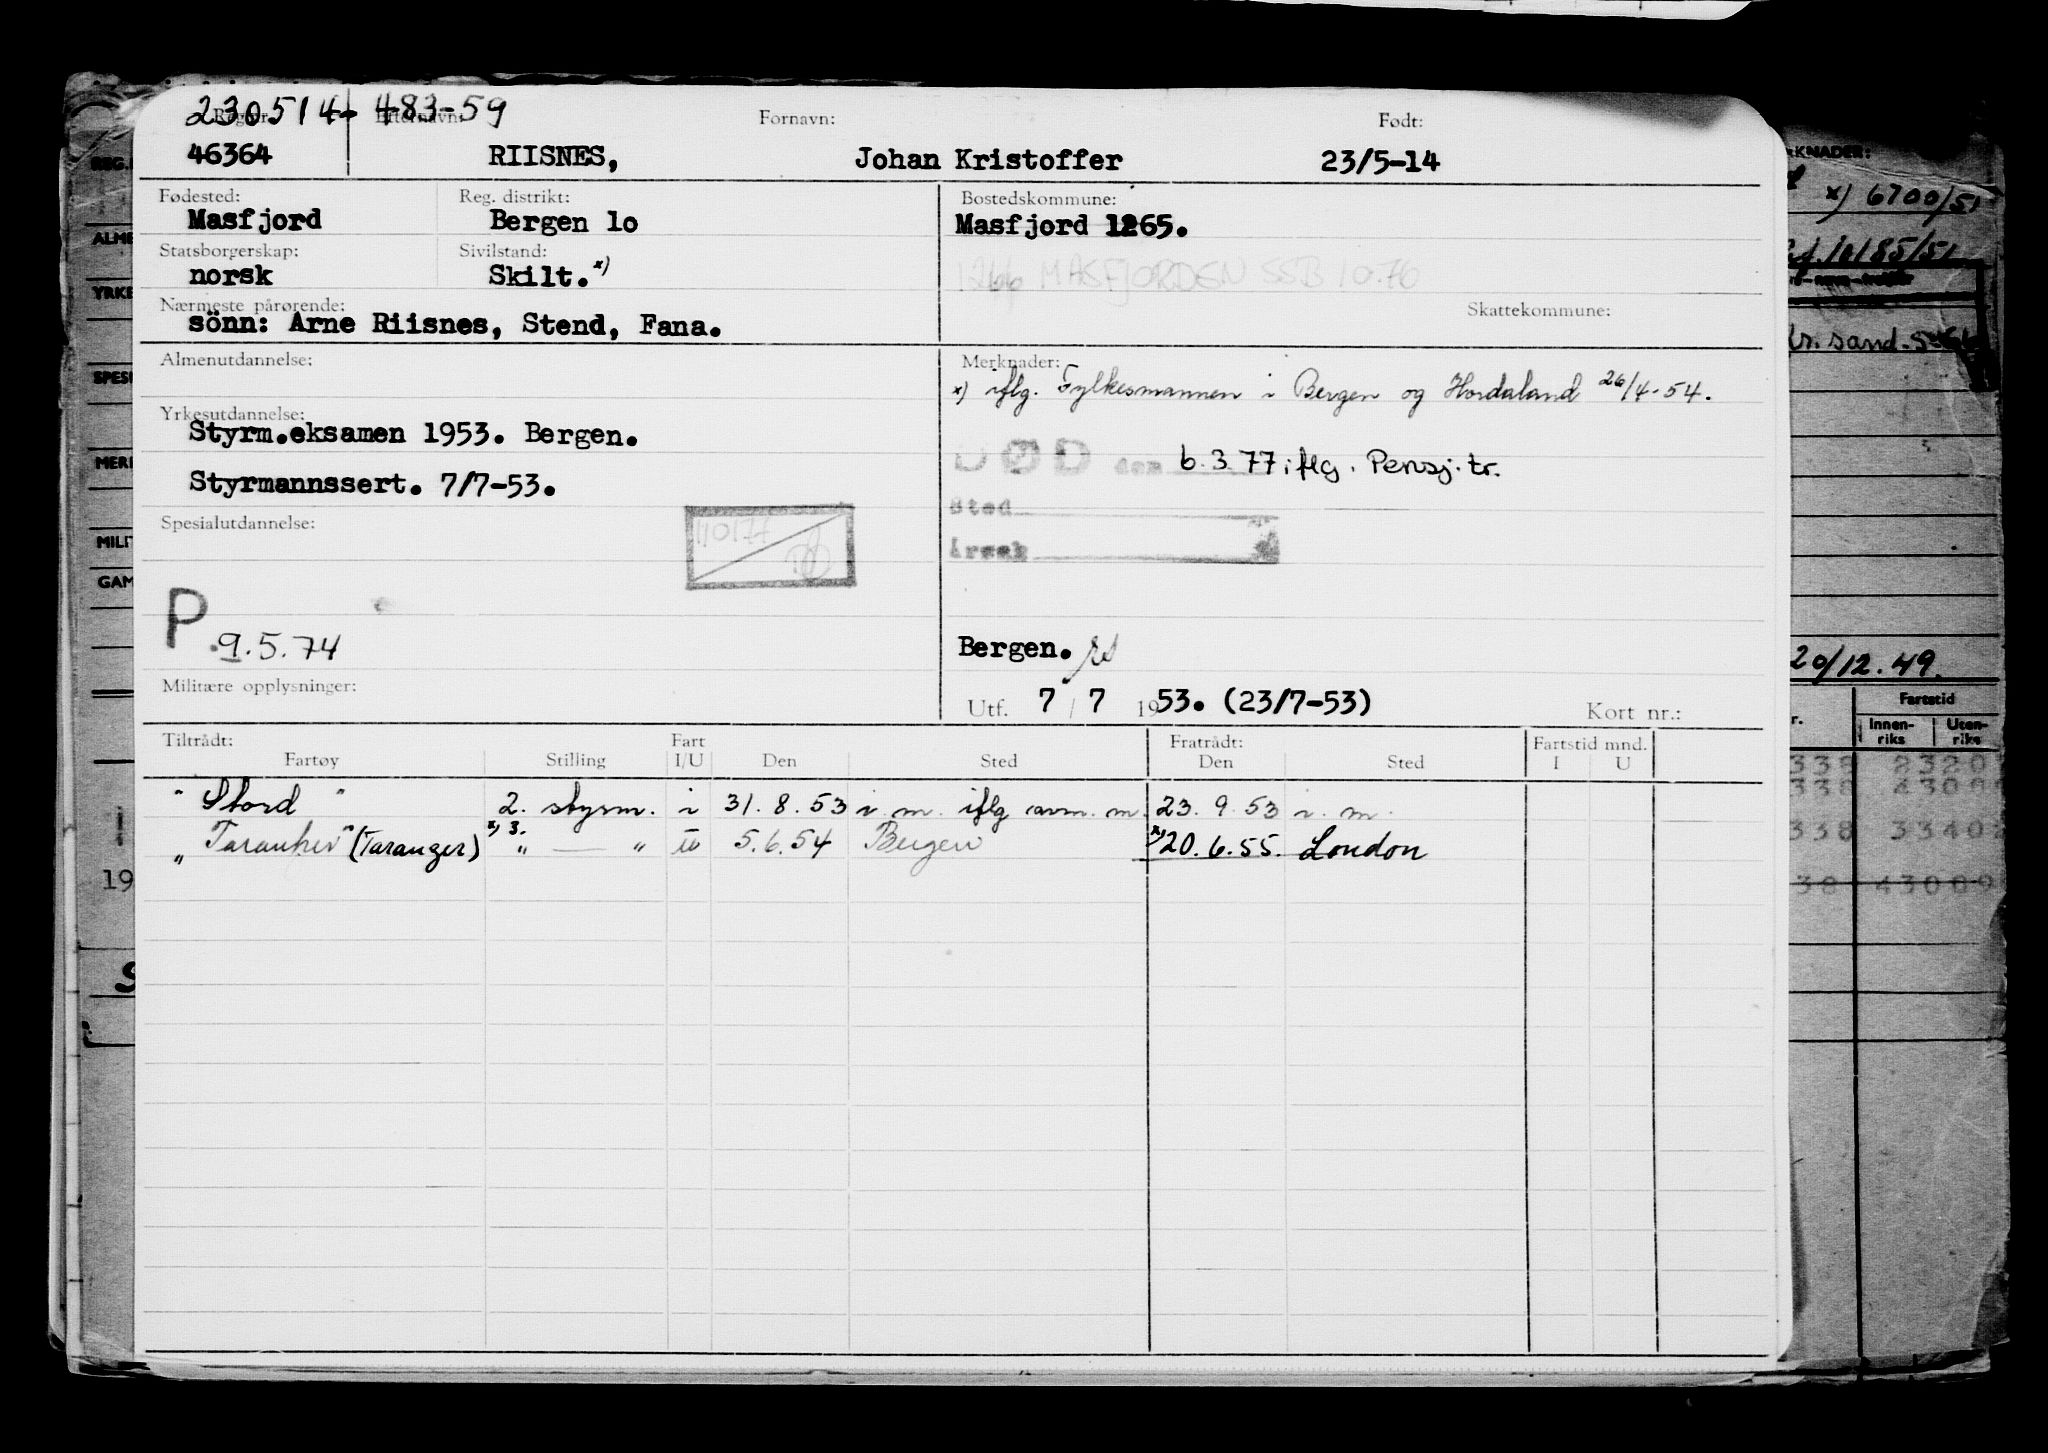 230514 483-59
Reg.nr. Etternavn: Fornavn: Født:
46364 RIISNES, Johan Kristoffer 23/5-14
Fødested: Reg. distrikt: Bostedskommune:
Masfjord Bergen lo Masfjord 1265.
Statsborgerskap: Sivilstand:
norsk Skilt. x) 1266 MASFJORDEN SSB 10.76
Nærmeste pårørende: Skattekommune:
sönn: Arne Riisnes, Stend, Fana.
Almenutdannelse: Merknader:
x) iflg. Fylkesmannen i Bergen og Hordaland 26/4-54.
Yrkesutdannelse:
Styrm.eksamen 1953. Bergen.
DØD den 6.3.77 iflg. Pensj.tr.
Styrmannssert. 7/7-53.
Sted
Spesialutdannelse:
110177
Årsak
P 9.5.74
Bergen.
Militære opplysninger:
Utf. 7 / 7 1953. (23/7-53) Kort nr.:
Tiltrådt: Fart Fratrådt: Fartstid mnd.
Fartøy Stilling I/U Den Sted Den Sted I U
" Stord " 2. styrm. i 31.8.53 i. m. iflg avm. m. 23.9.53 i. m.
" (Taranger) x) 3. " — " u 5.6.54 Bergen x) 20.6.55. London
REG.
ALME
YRKE
SPES
MERK
MILIT
GAM
19
RKNADER:
x) 6700/51
10185/51
kr. sand.
20/12.49.
r. Fartstid
Innen-riks Uten-riks
338 2320
338 4300
338 33402
38 43009